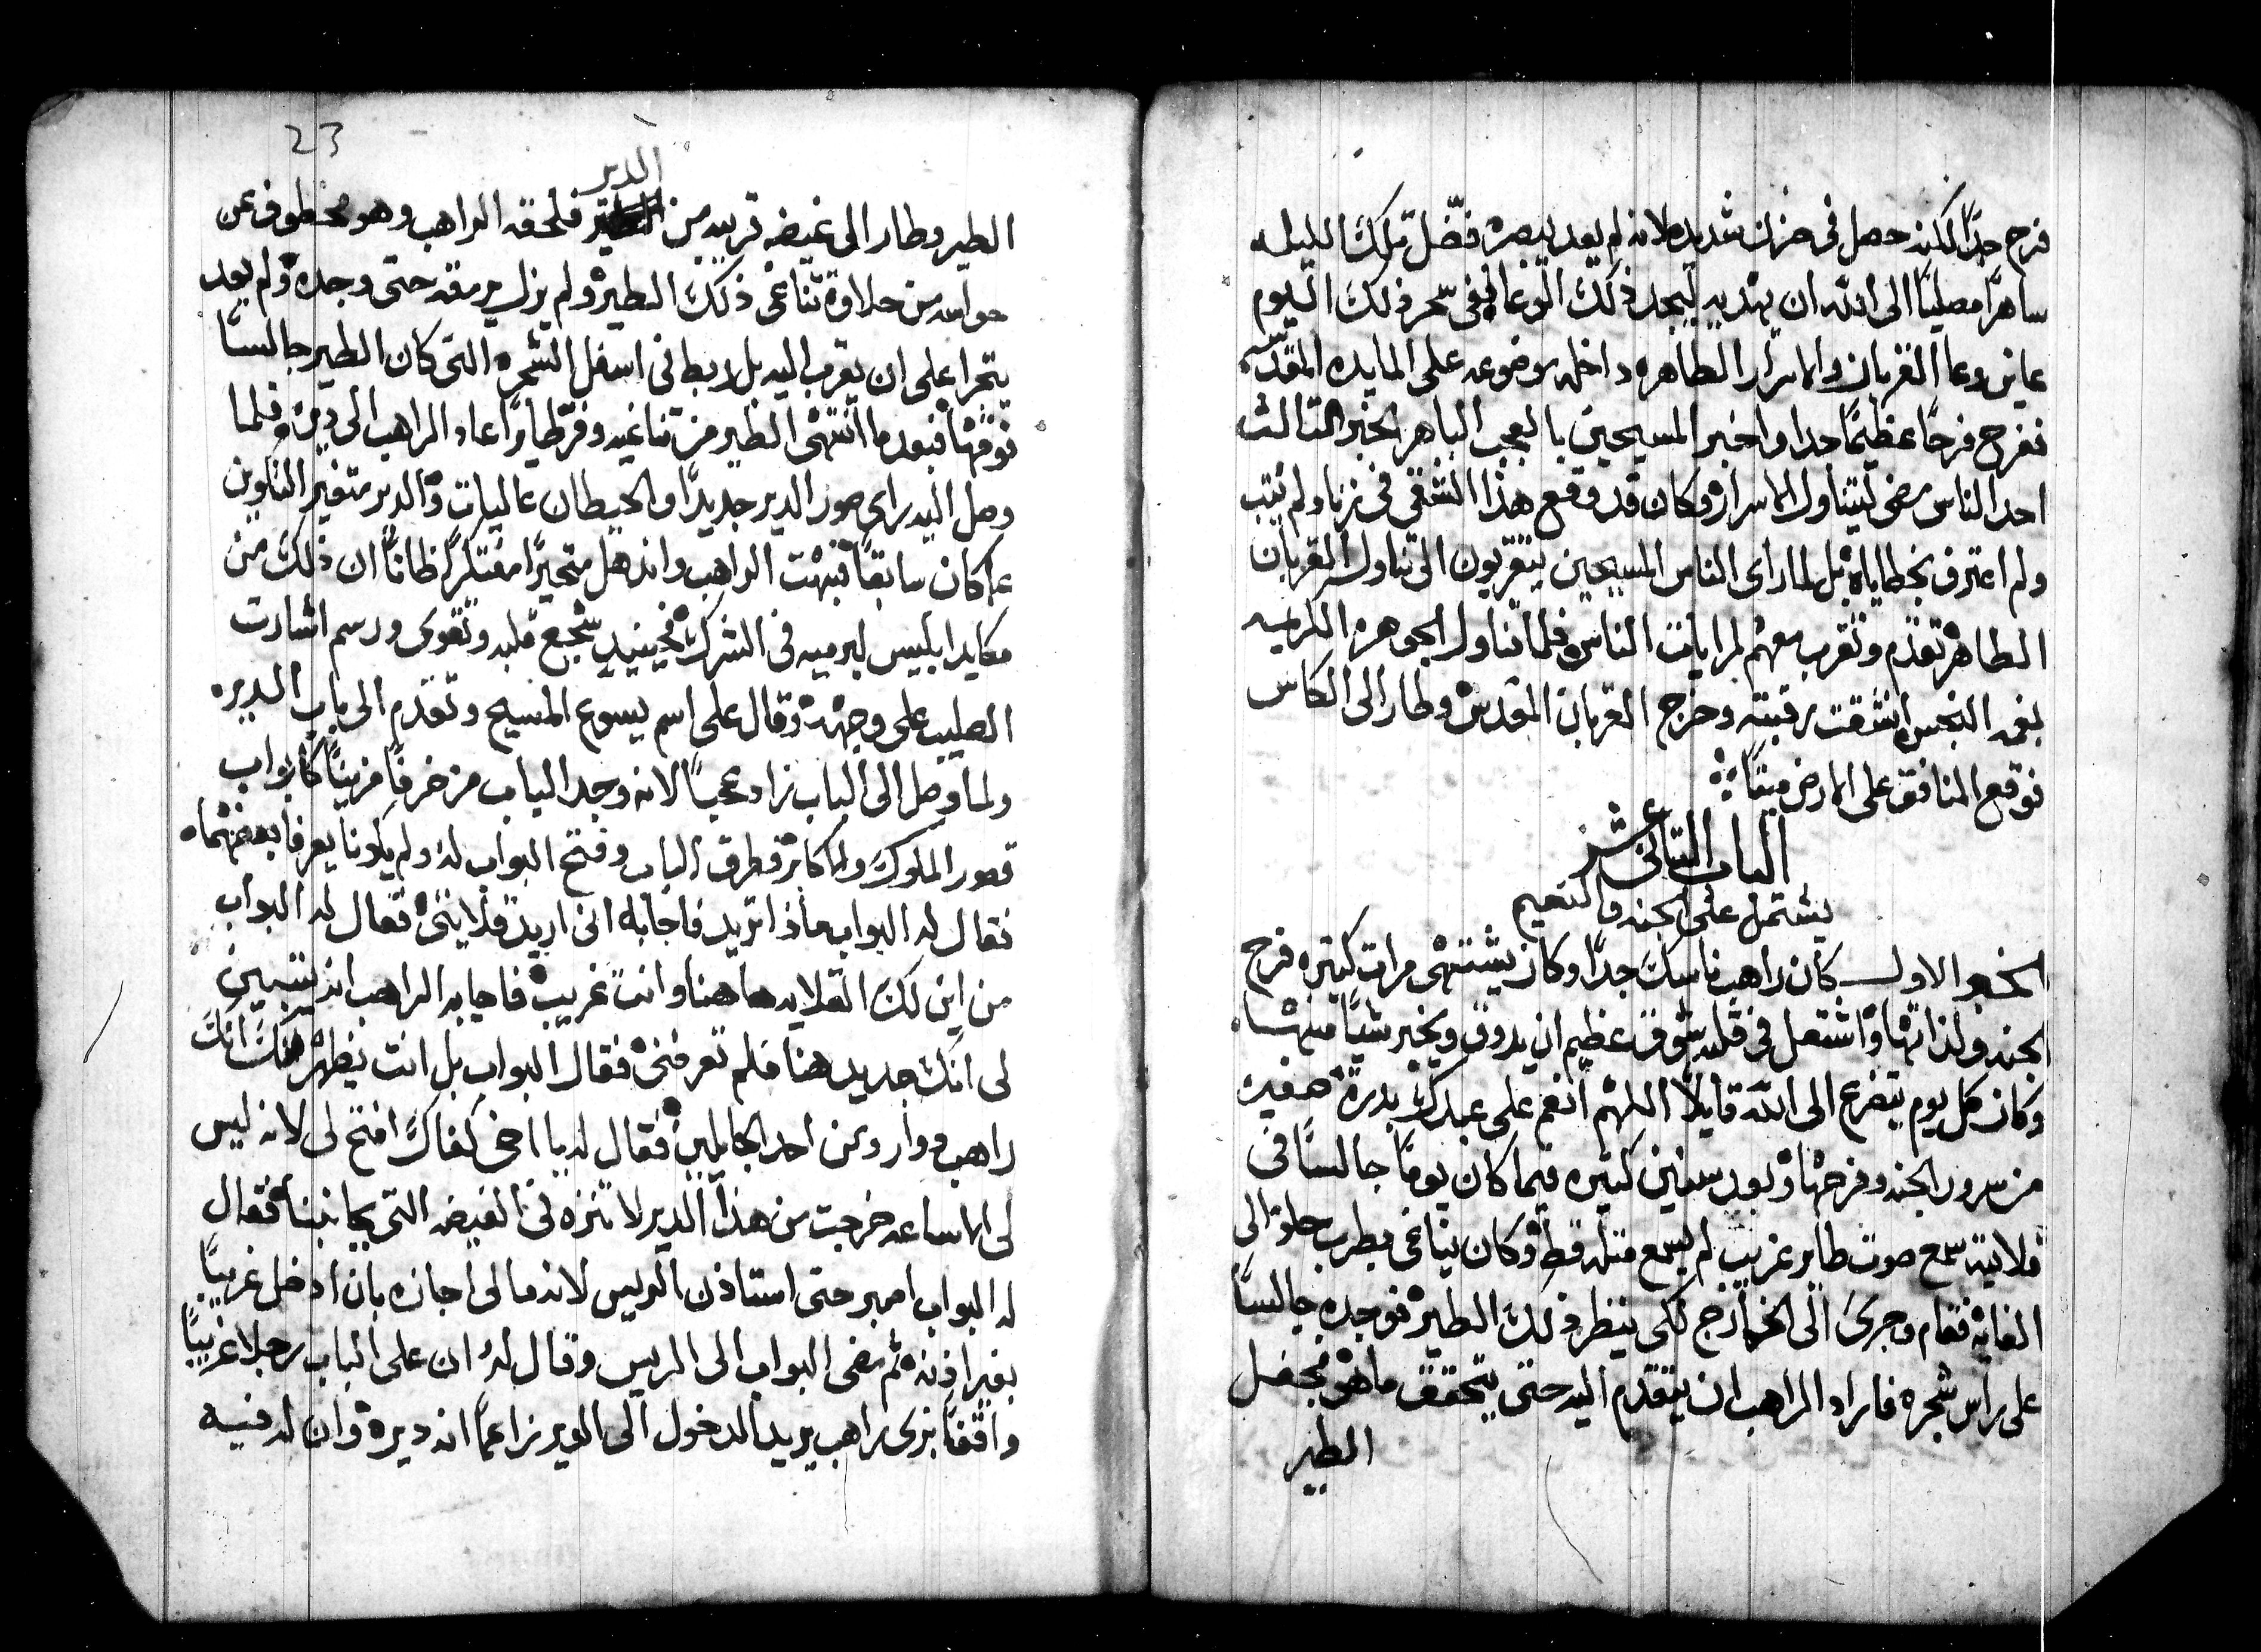 فرح جدًا لكنه حصل في حزن شديد لانه لم يعد يبصره فضّل تلك الليله
ساهرًا مصليًا الى الله ان يهديه ليجد ذلك الوعا ففى سحر ذلك اليوم
عاين وعا القربان والاسرار الطاهره داخله موضوعه على المايده المقدسه
ففرح فرحًا عظيمًا جدا واخبر المسيحيين بالعجب الباهر الخبر الثالث
احد الناس مضى ليتناول الاسرار وكان قد وقع هذا الشقي في زنا ولم يتب
ولم اعترف بخطاياه بل لما راى الناس المسيحين يتقربون الى تناول القربان
الطاهر تقدم وتقرب معهم لمرايات الناس فلما تناول الجوهره الكريمه
بفمه النجس انشقت رقبته وخرج القربان المقدس وطار الى الكاس
فوقع المنافق على الارض ميتًا
الباب الثاني عشر
يشتمل على الجنه والنعيم
الخبر الاول كان راهب ناسك جدًا وكان يشتهى مرات كثيره فرح
الجنه ولذاتها واشتعل في قلبه شوق عظيم ان يدوق ويخبر شيًا منها
وكان كل يوم يتضرع الى الله قايلًا اللهم انعم على عبدك بدرة صغيره
من سرور الجنه وفرحها وبعد سنين كثيره فيما كان يومًا جالسًا في
قلايته سمع صوت طاير غريب لم يسمع مثله قط وكان يناغى بطرب حلو الى
الغايه فقام وجرى الى الخارج لكى ينظر ذلك الطير فوجده جالسًا
على راس شجره فاراد الراهب ان يتقدم اليه حتى يتحقق ما هو فجفل
الطير
23
الدير
الطير وطار الى غيضه قريبه من فلحقه الراهب وهو مخطوف عن
حواسه من حلاوة تناغى ذلك الطير ولم يزل يرمقه حتى وجده ولم يعد
يتجرا على ان يقرب اليه بل ربط في اسفل الشجره التى كان الطير جالسًا
فوقها فبعد ما انتهى الطير من تناغيه وفر طايرًا عاد الراهب الى ديره فلما
وصل اليه راى صور الدير جديدًا والحيطان عاليات والدير متغير التكوين
عما كان سابقًا فبهت الراهب واندهل متحيرًا مفتكرًا ظانًا ان ذلك من
مكايد ابليس ليرميه في الشرك فحينيد شجع قلبه وتقوى ورسم اشارت
الصليب على وجهه وقال على اسم يسوع المسيح وتقدم الى باب الديره
ولما وصل الى الباب زاد عجبًا لانه وجد الباب مزخرفًا مزينًا كابواب
قصور الملوك والاكابر فطرق الباب وفتح البواب له ولم يكونا يعرفا بعضهما
فقال له البواب ماذا تريد فاجابه انى اريد قلايتى فقال له البواب
من اين لك القلايه هاهنا وانت غريب فاجابه الراهب انه يتبين
لى انك جديد هنا فلم تعرفنى فقال البواب بل انت يظهر منك انك
راهب دوار ومن احد الجايلين فقال له يا اخى كفاك افتح لى لانه ليس
لى الا ساعه خرجت من هذا الدير لاتنزه في الغيضه التى بجانبنا فقال
له البواب اصبر حتى استاذن الريس لانه ما لى اجازه بان ادخل غريبًا
بغير اذنه ثم مضى البواب الى الريس وقال له ان على الباب رجلا غريبًا
واقفًا بزى راهب يريد الدخول الى الدير زاعمًا انه ديره وان له فيه